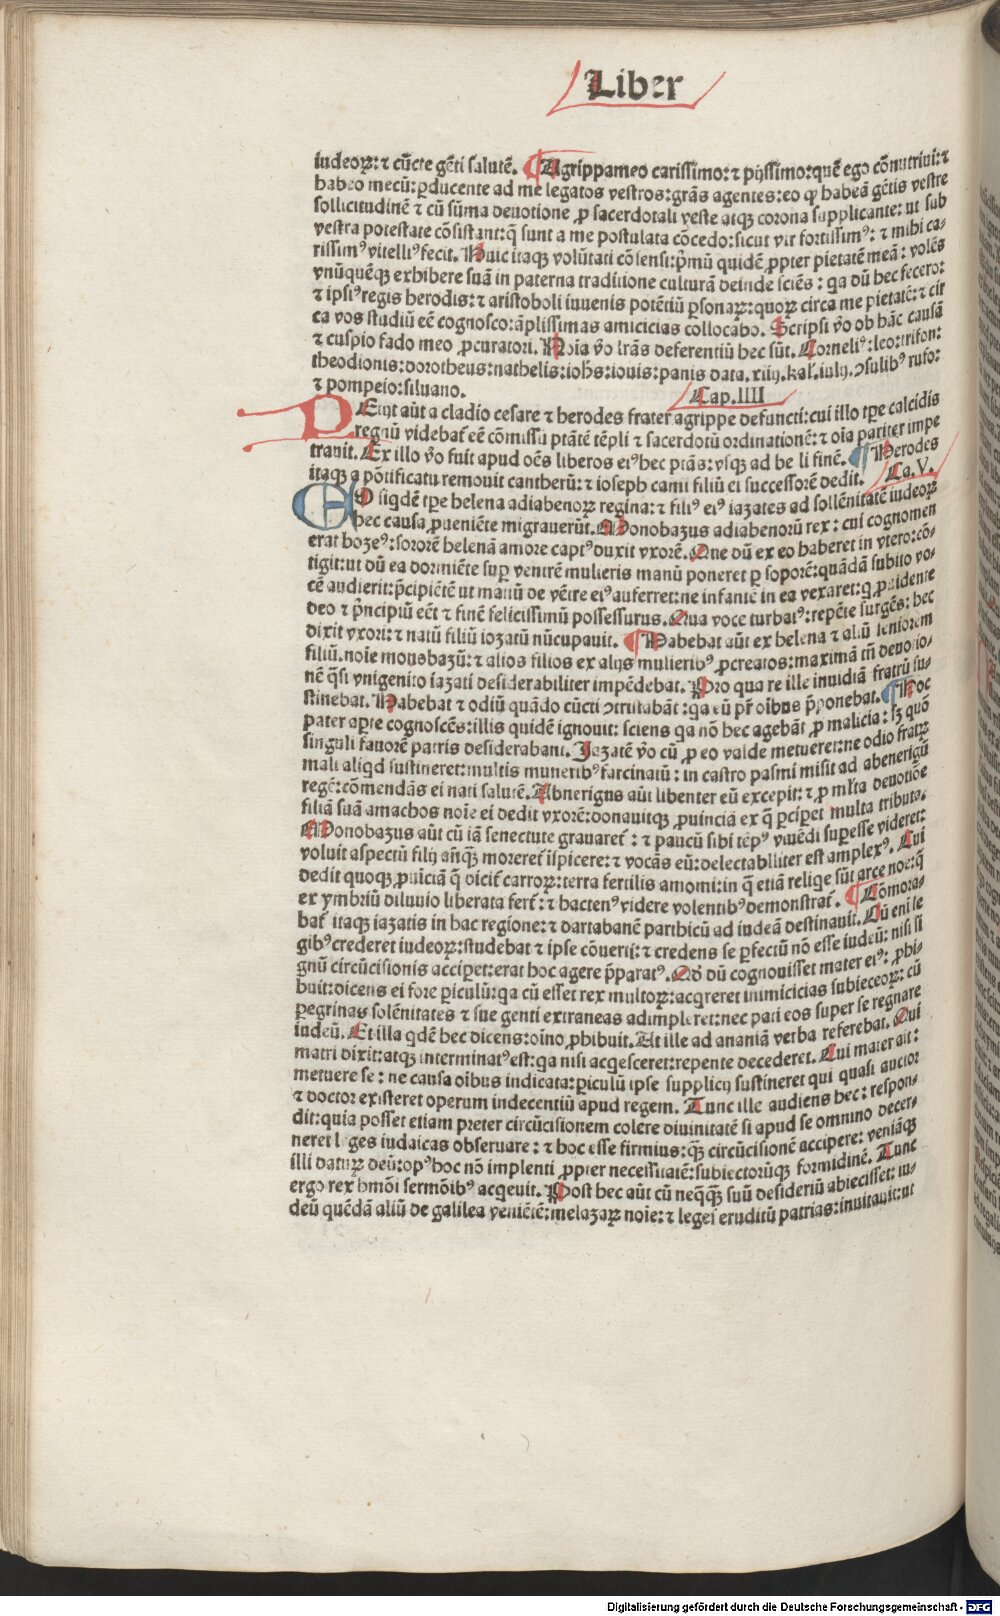 Liber
iudeoꝝ: ⁊ cūcte gēti salutē. ¶ Agrippam eo carissimo: ⁊ pijssimo: quē ego cōnutriui: ⁊
habeo mecū: ꝑducente ad me legatos vestros: grās agentes: eo ꝙ habeā gētis vestre
sollicitudinē ⁊ cū sūma deuotione ꝓ sacerdotali veste atqꝫ corona supplicante: ut sub
vestra potestate cōsistant: q̄ sunt a me postulata cōcedo: sicut vir fortissimꝰ: ⁊ mihi ca-
rissimꝰ vitelliꝰ fecit. Huic itaqꝫ volūtati cōsensi: p̄mū quidē ꝓpter pietatē meā: volēs
vnūquēqꝫ exhibere suā in paterna traditione culturā deinde sciēs: qa dū hec fecero:
⁊ ipsiꝰ regis herodis: ⁊ aristoboli iuuenis potētiū ꝑsonaꝝ: quoꝝ circa me pietatē: ⁊ cir
ca vos studiū eē cognosco: āplissimas amicicias collocabo. Scripsi ꝟo ob hāc causā
⁊ cuspio fado meo ꝓcuratori. Noīa ꝟo lrās deferentiū hec sūt. Corneliꝰ: leo: trifon:
theodionis: dorotheus: nathelis: iohs: iouis: panis data. xiiij. kal. iulij. ꝯsulibꝰ rufo:
⁊ pompeio: siluano. Cap. IIII
PEtijt aūt a cladio cesare ⁊ herodes frater agrippe defuncti: cui illo tꝑe calcidis
regnū videbat̄ eē cōmissū ptātē tēpli ⁊ sacerdotū ordinationē: ⁊ oīa pariter impe
trauit. Ex illo ꝟo fuit apud oēs liberos eiꝰ hec ptās: vsqꝫ ad belli finē. ¶ Herodes
itaqꝫ a pōtificatu remouit cantherū: ⁊ ioseph cami filiū ei successorē dedit. Ca. V.
EO siqdē tꝑe helena adiabenoꝝ regina: ⁊ filiꝰ eiꝰ iazates ad sollēnitatē iudeoꝝ
hec causa ꝓueniēte migrauerūt. Monobazus adiabenorū rex: cui cognomen
erat bozeꝰ: sororē helenā amore captꝰ duxit vxorē. Que dū ex eo haberet in vtero: cō-
tigit: ut dū ea dormiēte suꝑ ventrē mulieris manū poneret ꝑ soporē: quādā subito vo-
cē audierit: p̄cipiētē ut manū de vētre eiꝰ auferret: ne infantē in ea vexaret: q ꝓuidente
deo ⁊ p̄ncipiū eēt ⁊ finē felicissimū possessurus. Qua voce turbatꝰ: repēte surgēs: hec
dixit vxori: ⁊ natū filiū iozatū nūcupauit. ¶ Habebat aūt ex helena ⁊ aliū seniorem
filiū. noīe monobazū: ⁊ alios filios ex alijs mulieribꝰ ꝓcreatos: maximā tn̄ deuotio-
nē q̄si vnigenito iazati desiderabiliter impēdebat. Pro qua re ille inuidiā fratrū su-
stinebat. Habebat ⁊ odiū quādo cūcti ꝯtristabāt: qa eū pr̄ oībus p̄ponebat. ¶ Hoc
pater aꝑte cognoscēs: illis quidē ignouit: sciens qa nō hec agebāt ꝓ malicia: sꝫ quō
singuli fauorē patris desiderabant. Iazatē ꝟo cū ꝓ eo valde metueret: ne odio fratꝝ
mali aliqd sustineret: multis muneribꝰ farcinatū: in castro pasmi misit ad abenerigū
regē: cōmendās ei nati salutē. Abnerigus aūt libenter eū excepit: ⁊ ꝓ ml̄ta deuotiōe
filiā suā amachos noīe ei dedit vxorē: donauitqꝫ ꝓuinciā ex q̄ ꝑciperet multa tributa.
Monobazus aūt cū iā senectute grauaret̄: ⁊ paucū sibi tēpꝰ viuēdi suꝑesse videret:
voluit aspectū filij an̄qꝫ moreret̄ īspicere: ⁊ vocās eū: delectabiliter est amplexꝰ. Cui
dedit quoqꝫ ꝓuīciā q̄ dicit̄ carroꝝ: terra fertilis amomi: in q̄ etiā reliqe sūt arce noe: q̄
ex ymbriū diluuio liberata fert̄: ⁊ hactenꝰ videre volentibꝰ demonstrat̄. ¶ Cōmora-
bat̄ itaqꝫ iazatis in hac regione: ⁊ dartabanē parthicū ad iudeā destinauit. Cū eni le
gibꝰ crederet iudeoꝝ: studebat ⁊ ipse cōuerti: ⁊ credens se ꝑfectū nō esse iudeū: nisi si
gnū circūcisionis acciꝑet: erat hoc agere p̄paratꝰ. Qd dū cognouisset mater eiꝰ: ꝓhi-
buit: dicens ei fore ꝑiculū: qa cū esset rex multoꝝ: acqreret inimicicias subieceoꝝ: cū
ꝑegrinas solēnitates ⁊ sue genti extraneas adimpleret: nec pati eos super se regnare
iudeū. Et illa qdē hec dicens: oīno ꝓhibuit. At ille ad ananiā verba referebat. Qui
matri dixit: atqꝫ interminatꝰ est: qa nisi acqesceret: repente decederet. Cui mater ait:
metuere se: ne causa oībus indicata: ꝑiculū ipse supplicij sustineret qui quasi auctor
⁊ doctor existeret operum indecentiū apud regem. Tunc ille audiens hec: respon-
dit: quia posset etiam preter circūcisionem colere diuinitatē si apud se omnino decer-
neret leges iudaicas obseruare: ⁊ hoc esse firmius: qꝫ circūcisionē accipere: veniāqꝫ
illi datuꝝ deū: opꝰ hoc nō implenti ꝓpter necessitatē: subiectorūqꝫ formidinē. Tunc
ergo rex hmōi sermōibꝰ acqeuit. Post hec aūt cū neqqꝫ suū desideriū abiecisset: iu-
deū quēdā aliū de galilea veniētē: melazaꝝ noīe: ⁊ legei eruditū patrias: inuitauit: ut
Digitalisierung gefördert durch die Deutsche Forschungsgemeinschaft - DFG